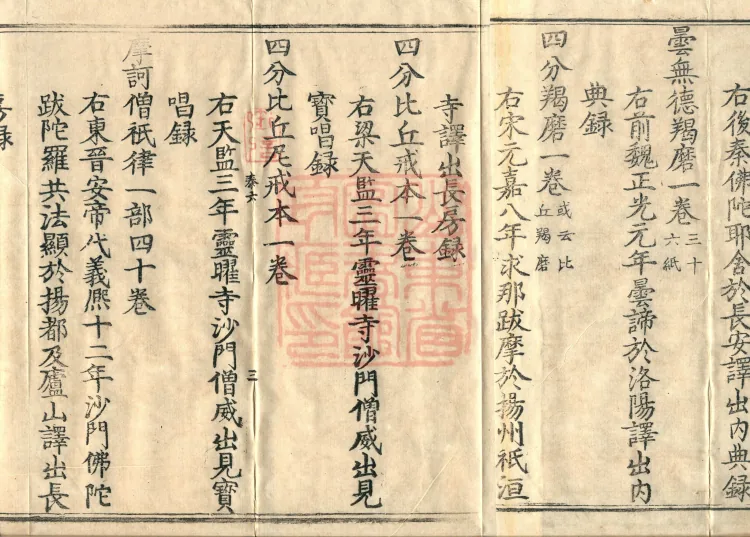 右後秦佛陀耶舍於長安譯出內典録
曇無德羯磨一卷三十六紙
右前魏正光元年曇諦於洛陽譯出内
典録
四分羯磨一卷或云比丘羯磨
右宋元嘉八年求那跋摩於揚州祇洹
寺譯出長房録
四分比丘戒本一卷
右梁天監三年靈曜寺沙門僧威出見
寳唱録
四分比丘尼戒本一卷
三
右天監三年靈曜寺沙門僧威出見寳
唱録
摩訶僧祇律一部四十卷
右東晉安帝代義熈十二年沙門佛陀
跋陀羅共法顯於揚都及廬山譯出長
房録